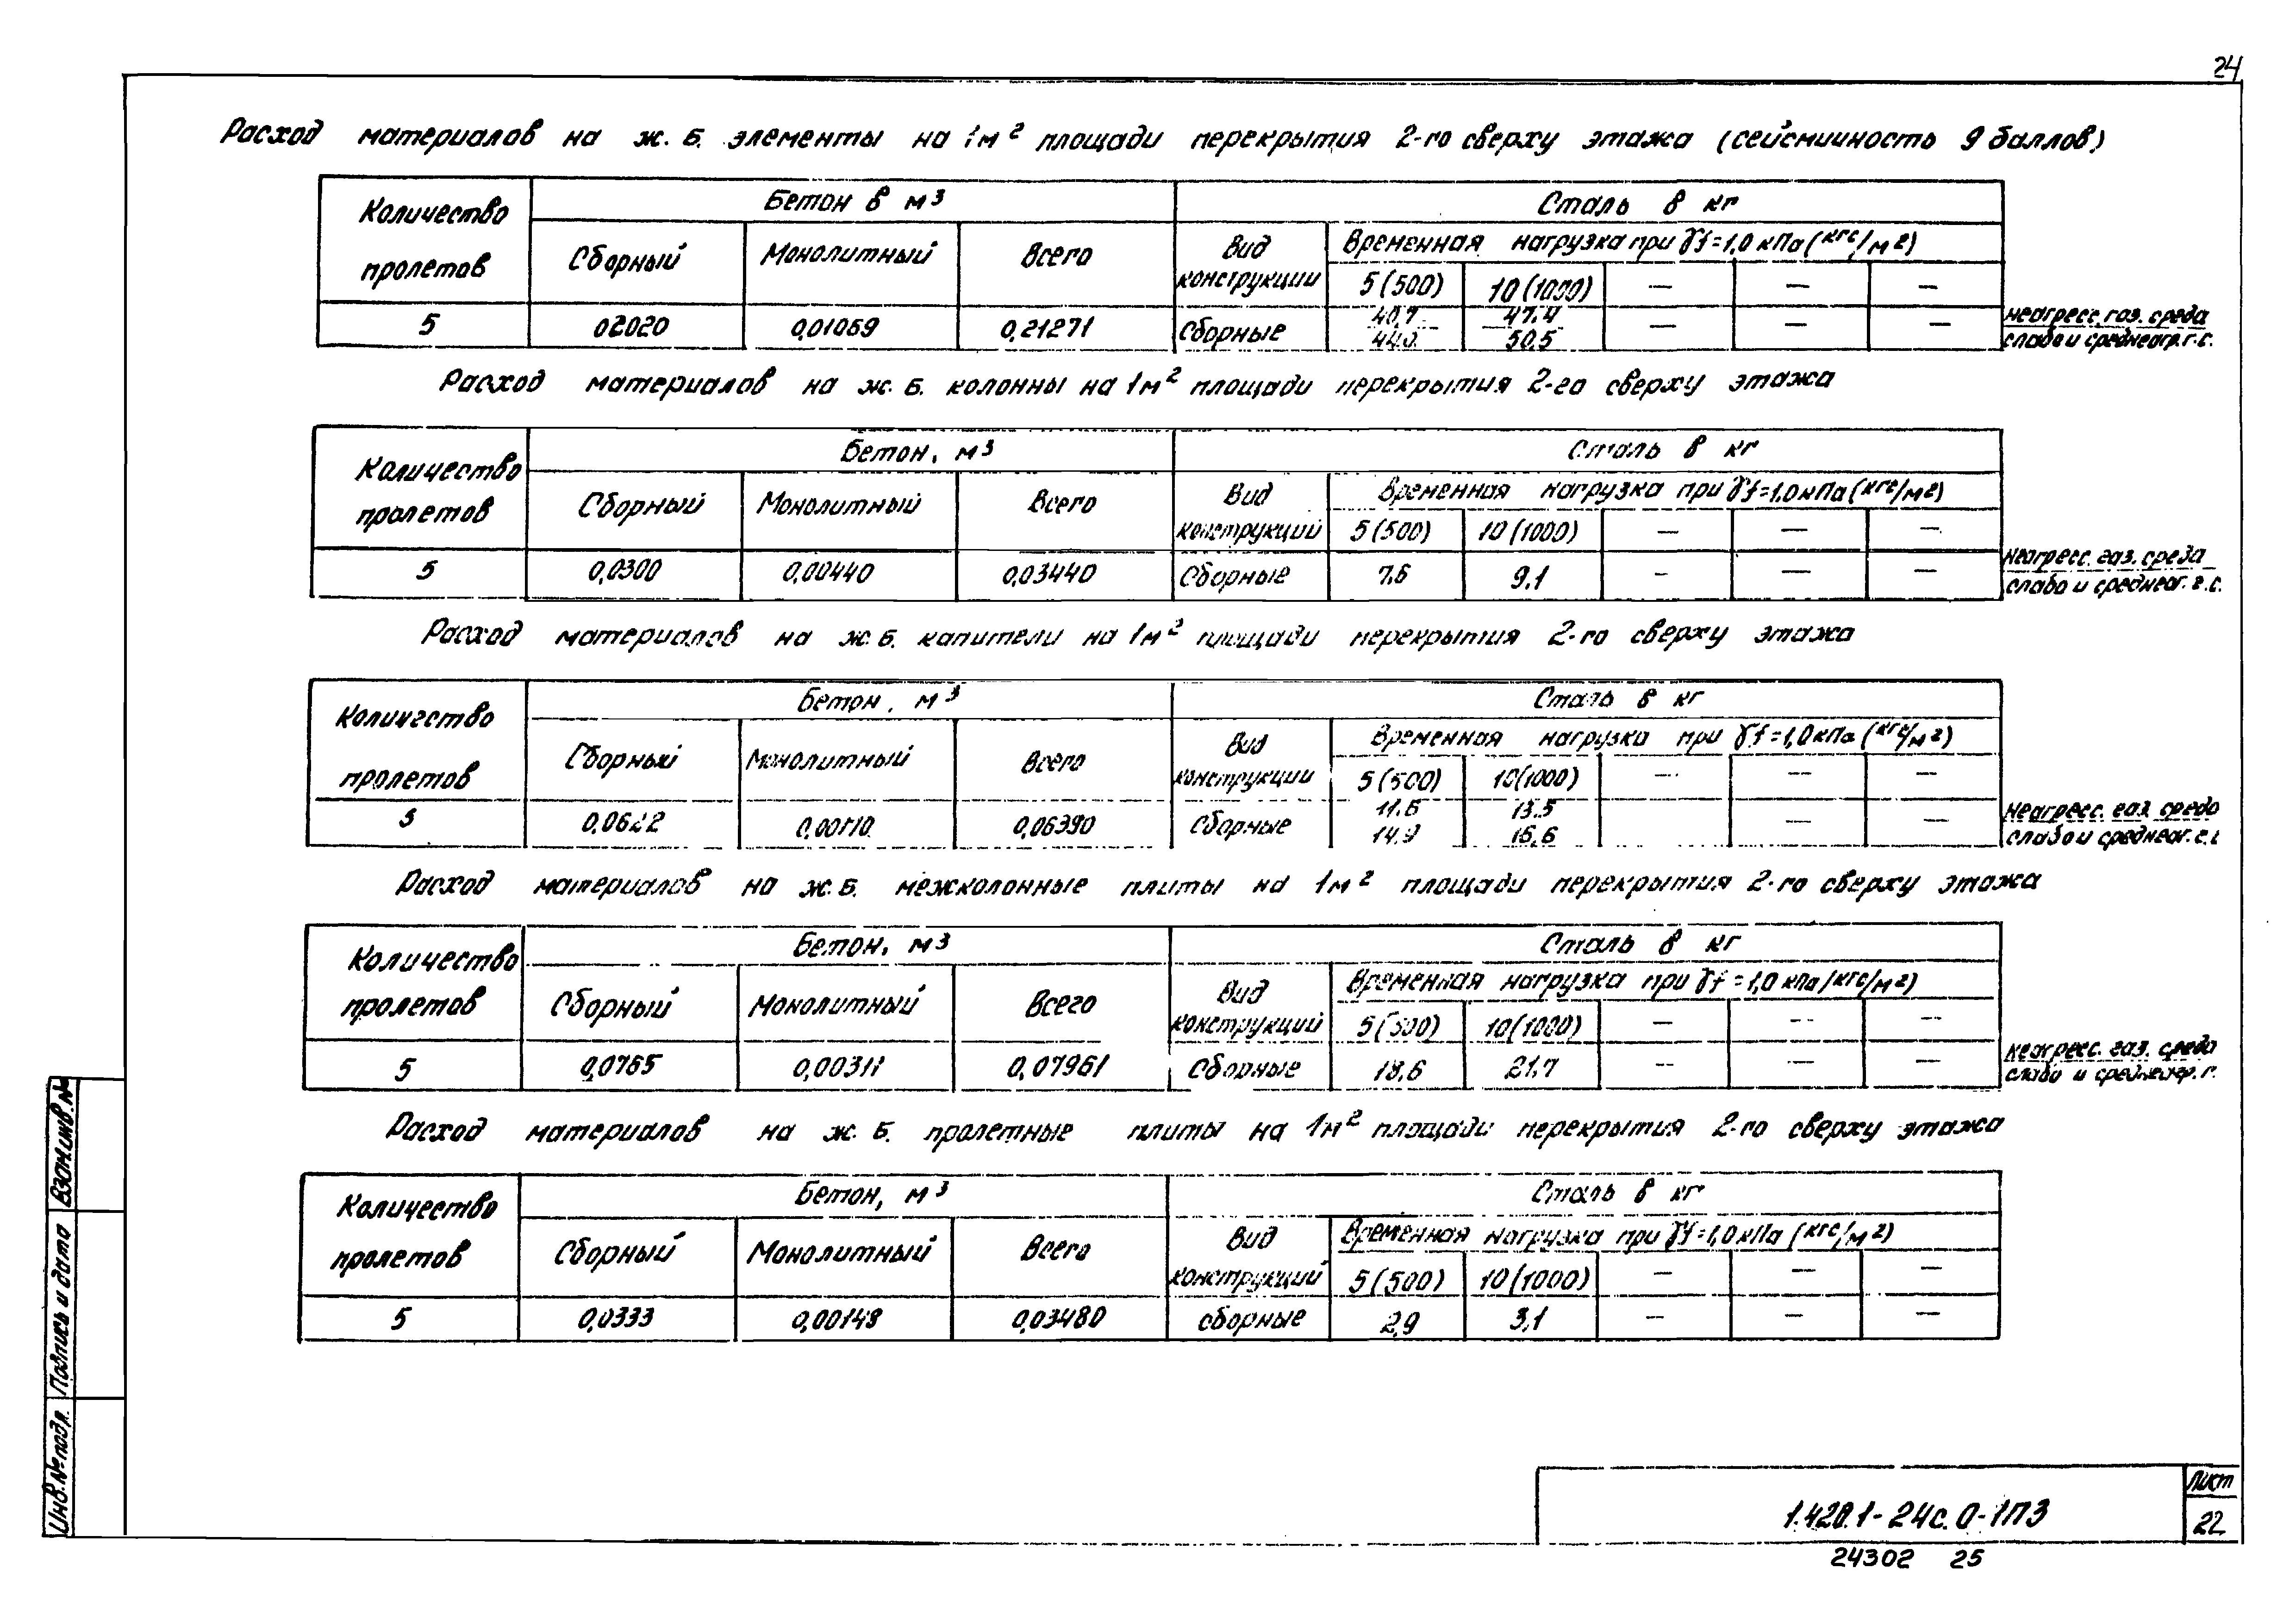 24
Расход материалов на ж.б. элементы на 1м² площади перекрытия 2-го сверху этажа (сейсмичность 9 баллов)
Количество пролетов | Бетон в м³ | Сталь в кг
Сборный | Монолитный | Всего | Вид конструкции | Временная нагрузка при γf=1,0 кПа (кгс/м²)
5(500) | 10(1000) | — | — | —
5 | 02020 | 0,01069 | 0,21271 | Сборные | 40,7 | 47.4 | — | — | — | неагресс. газ. среда
50,5 | слабо и среднеагр. г. с.
Расход материалов на ж.б. колонны на 1м² площади перекрытия 2-го сверху этажа
Количество пролетов | Бетон, м³ | Сталь в кг
Сборный | Монолитный | Всего | Вид конструкций | Временная нагрузка при γf=1,0 кПа (кгс/м²)
5(500) | 10(1000) | — | — | —
5 | 0,0300 | 0,00440 | 0,03440 | Сборные | 7,6 | 9,1 | — | — | — | неагресс. газ. среда
слабо и среднеаг. г. с.
Расход материалов на ж.б. капители на 1м² площади перекрытия 2-го сверху этажа
Количество пролетов | Бетон, м³ | Сталь в кг
Сборный | Монолитный | Всего | Вид конструкции | Временная нагрузка при γf=1,0 кПа (кгс/м²)
5(500) | 10(1000) | — | — | —
5 | 0,0622 | 0,00170 | 0,06390 | Сборные | 11.6 | 13.5 | — | — | неагресс. газ. среда
14.9 | 16,6 | слабо и среднеаг. г. с.
Расход материалов на ж.б. межколонные плиты на 1м² площади перекрытия 2-го сверху этажа
Количество пролетов | Бетон, м³ | Сталь в кг
Сборный | Монолитный | Всего | Вид конструкций | Временная нагрузка при γf=1,0 кПа (кгс/м²)
5(500) | 10(1000) | — | — | —
5 | 0,0765 | 0,00311 | 0,07961 | Сборные | 18,6 | 21.7 | — | — | — | неагресс. газ. среда
слабо и среднеагр. г.
Расход материалов на ж.б. пролетные плиты на 1м² площади перекрытия 2-го сверху этажа
Количество пролетов | Бетон, м³ | Сталь в кг
Сборный | Монолитный | Всего | Вид конструкций | Временная нагрузка при γf=1,0 кПа (кгс/м²)
5(500) | 10(1000) | — | — | —
5 | 0,0333 | 0,00148 | 0,03480 | сборные | 2,9 | 3,1 | — | — | —
Взам.инв.№
Подпись и дата
Инв.№ подл.
1.420.1-24с.0-1ПЗ
Лист
22
24302 25